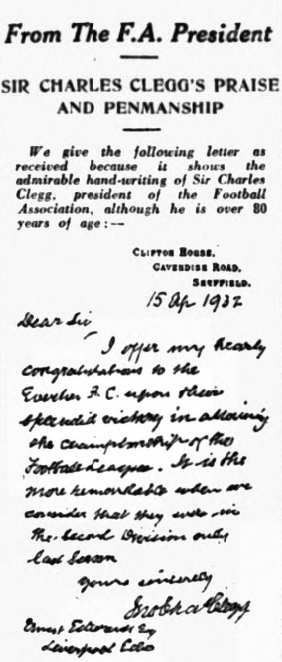 From The F.A. President
SIR CHARLES CLEGG'S PRAISE
AND PENMANSHIP
We give the following letter as
received because it shows the
admirable hand-writing of Sir Charles
Clegg, president of the Football
Association, although he is over 80
years of age :—
CLIFTON HOUSE,
CAVENDISH ROAD,
SHEFFIELD.
15 Ap 1932
Dear Sir
I offer my hearty
congratulations to the
Everton F.C. upon their
splendid victory in
the championship of the
Football League. It is the
more remarkable when we
consider that they were in
the Second Division only
last season
Yours sincerely
Clegg
Ernest Edwards Esq
Liverpool Echo